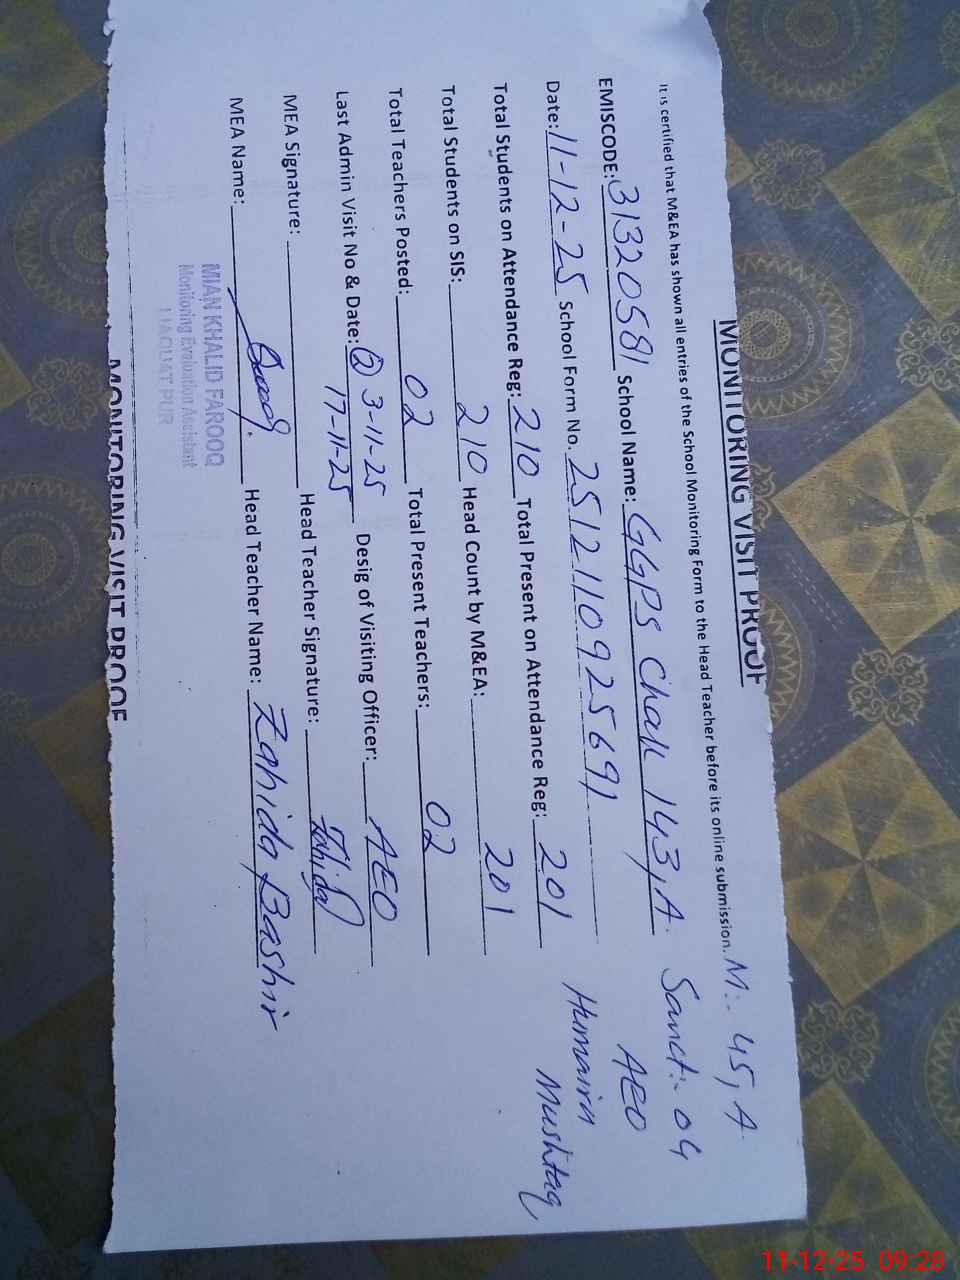 MONITORING VISIT PROOF
It is certified that M&EA has shown all entries of the School Monitoring Form to the Head Teacher before its online submission. M:- 45, A
EMISCODE: 31320581 School Name: GGPS Chak 143, A. Sanct:- 04
Date: 11-12-25 School Form No. 2512110925691 AEO
Total Students on Attendance Reg: 210 Total Present on Attendance Reg: 201 Humaira Mushtaq
Total Students on SIS: 210 Head Count by M&EA: 201
Total Teachers Posted: 02 Total Present Teachers: 02
Last Admin Visit No & Date: (2) 3-11-25 Desig of Visiting Officer: AEO
17-11-25
MEA Signature: Head Teacher Signature: Zahida
MEA Name: Head Teacher Name: Zahida Bashir
MIAN KHALID FAROOQ
Monitoring Evaluation Assistant
LIAQUAT PUR
MONITORING VISIT PROOF
11-12-25 09:28